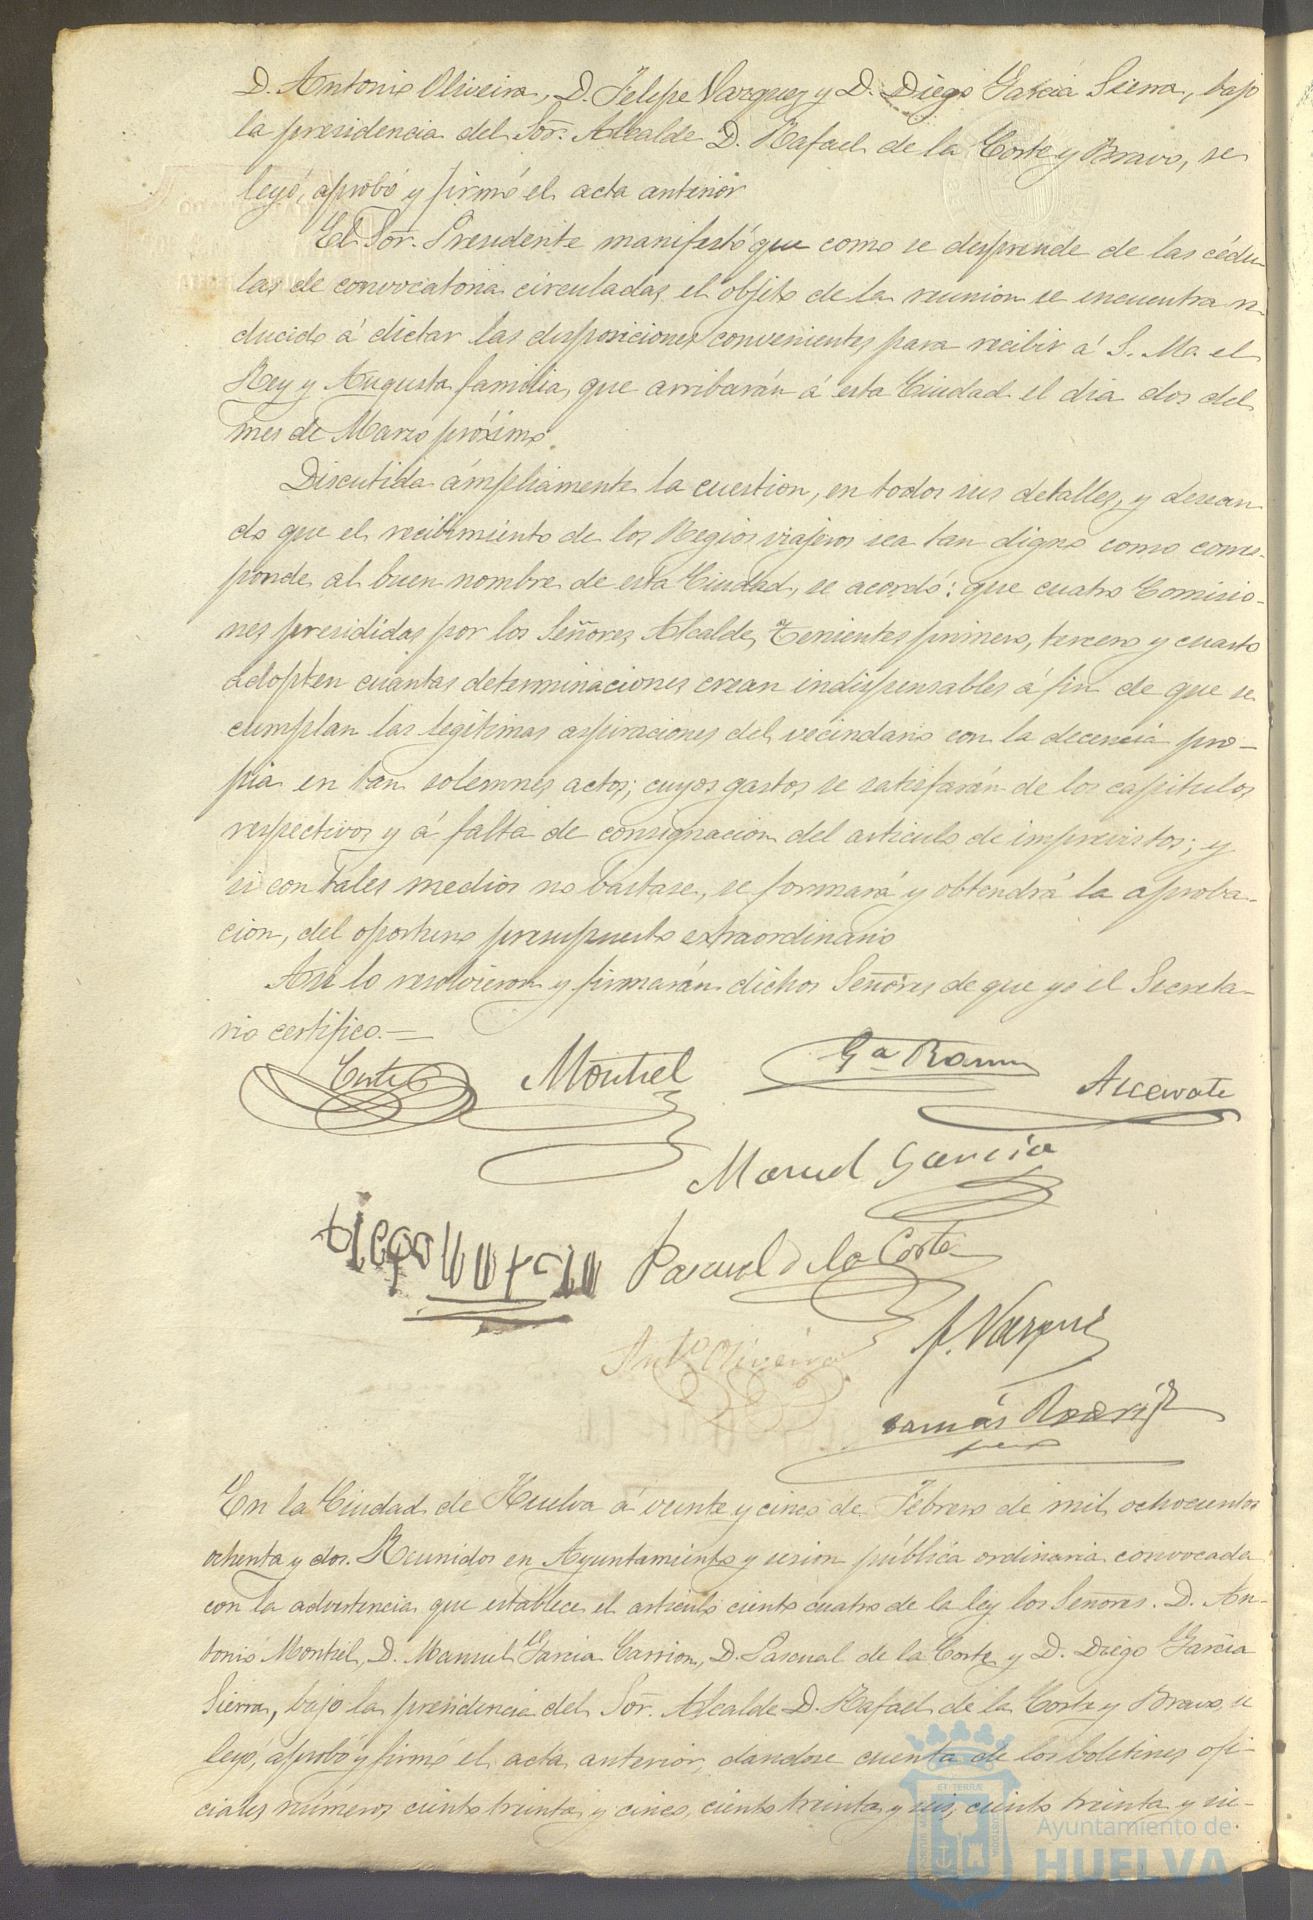 D. Antonio Oliveira, D. Felipe Vazquez y D. Diego Garcia Sierra, bajo
la presidencia del Sor. Alcalde D. Rafael de la Corte y Bravo, se
leyó, aprobó y firmó el acta anterior
El Sor. Presidente manifestó que como se desprende de las cédu-
las de convocatoria circuladas, el objeto de la reunion se encuentra re-
ducido á dictar las disposiciones convenientes para recibir á S. M. el
Rey y Augusta familia, que arribarán á esta Ciudad el dia dos del
mes de Marzo próximo.
Discutida ámpliamente la cuestion, en todos sus detalles, y desean
do que el recibimiento de los Regios viajeros sea tan digno como corres-
ponde al buen nombre de esta Ciudad, se acordó: que cuatro Comisio-
nes presididas por los Señores Alcalde, Tenientes primero, tercero y cuarto
adopten cuantas determinaciones crean indispensables á fin de que se
cumplan las legítimas aspiraciones del vecindario con la decencia pro-
pia en tan solemnes actos; cuyos gastos se satisfarán de los capitulos
respectivos y á falta de consignacion del articulo de imprevistos; y
si con tales medios no bastase, se formará y obtendrá la aproba-
cion, del oportuno presupuesto extraordinario
Asi lo resolvieron y firmarán dichos Señores de que yo el Secreta-
rio certifico.=
Corte
Montiel
Ga Ramn
Azcarate
Manuel Garcia
Diego Garcia
Pascual d la Corte
F. Vazquez
Anto Oliveira
Tomás Rodrigz
En la Ciudad de Huelva á veinte y cinco de Febrero de mil ochocientos
ochenta y dos. Reunidos en Ayuntamiento y sesion pública ordinaria convocada
con la advertencia que establece el articulo ciento cuatro de la ley los Señores. D. An-
tonio Montiel, D. Manuel Garcia Carrion, D. Pascual de la Corte y D. Diego Garcia
Sierra, bajo la presidencia del Sor. Alcalde D. Rafael de la Corte y Bravo, se
leyó, aprobó y firmó el acta anterior, dandose cuenta de los boletines ofi-
ciales números ciento treinta y cinco, ciento treinta y seis, ciento treinta y sie-
Ayuntamiento de
HUELVA